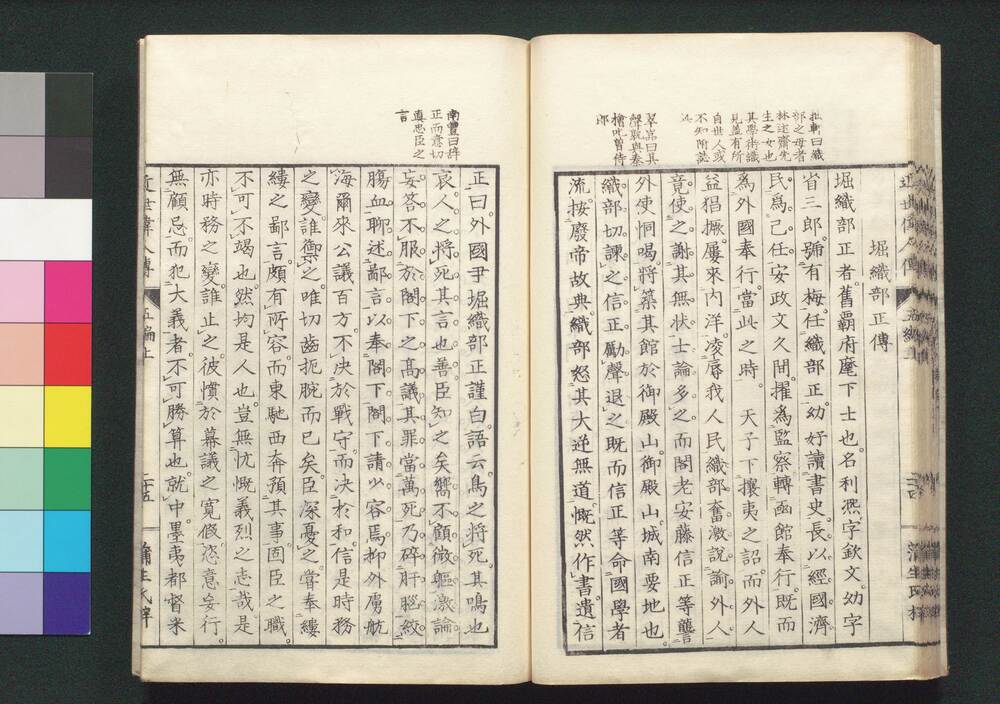 堀織部正傳
堀織部正者。舊覇府麾下士也。名利熙。字欽文。幼字
省三郎。號有梅。任織部正。幼好讀書史。長以經國濟
民爲己任。安政文久間。擢爲監察。轉函館奉行。既而
爲外國奉行。當此之時。天子下攘夷之詔。而外人
益猖撅。屢來內洋。凌辱我人民。織部奮激說諭外人。
竟使之謝其無狀。士論多之。而閣老安藤信正等讋
外使恫喝。將築其館於御殿山。御殿山。城南要地也。
織部切諫之。信正勵聲退之。既而信正等命國學者
流。按廢帝故典。織部怒其大逆無道。慨然作書。遺信
正曰。外國尹堀織部正謹白。語云。鳥之將死。其鳴也
哀。人之將死。其言也善。臣知之矣。嚮不顧微軀。激論
妄答。不服於閣下之高議。其罪當萬死。乃碎肝腦。絞
膓血。聊述鄙言。以奉閣下。閣下請少容焉。抑外虜航
海爾來。公議百方。不決於戰守。而決於和。信是時務
之變。誰禦之。唯切齒扼腕而已矣。臣深憂之。嘗奉縷
縷之鄙言。頗有所容。而東馳西奔。預其事。固臣之職。
不可不竭也。然均是人也。豈無忼慨義烈之志哉。是
亦時務之變。誰止之。彼慣於幕議之寬假。恣意妄行。
無顧忌。而犯大義者。不可勝算也。就中墨夷都督米
林述齋先
生之女也
其學術識
見蓋有所
自世人或
不知附誌
南豐曰辞
正而意切
真忠臣之
言
近世偉人傳
五編上
二十五
蒲生氏梓